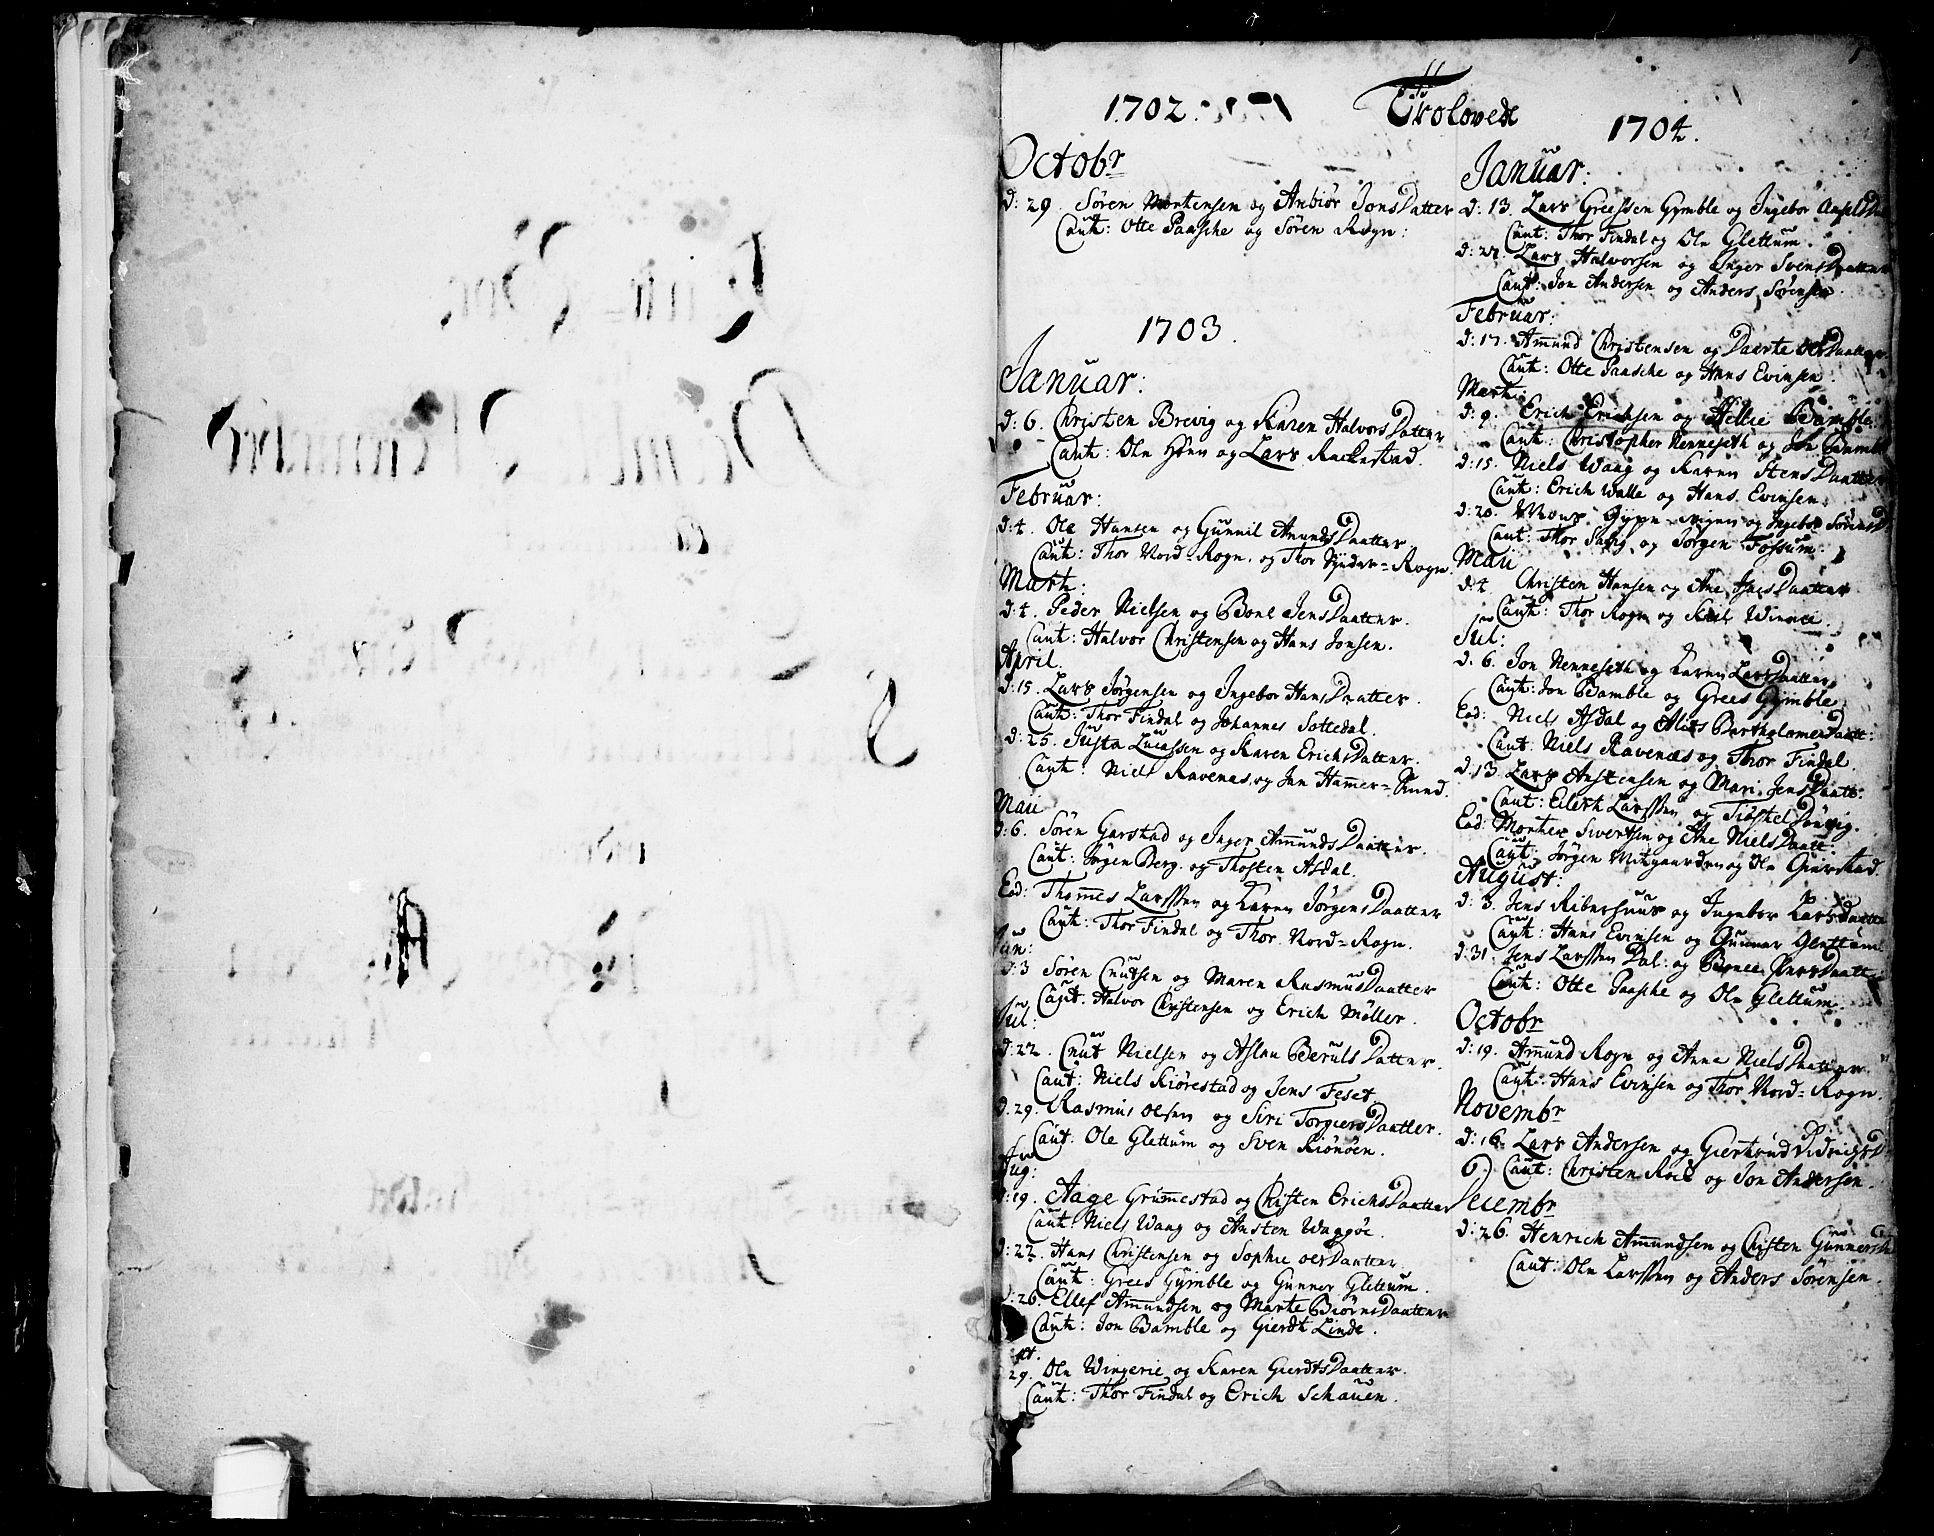 Trolovede
1702.
Octobr
d: 29. Sören Mortensen og Anbiör JonsDatter
Caut: Otte Paasche og Sören Rogn:
1703.
Januar:
d: 6. Christen Brevig og Karen HalvorsDatter
Caut: Ole Höen og Lars Rackestad.
Februar:
d: 4. Ole Hansen og Gunnil AmundsDaatter
Caut: Thor Nord-Rogn. og Thor Synder-Rogn.
Mart:
d: 4. Peder Nielsen og Bonl JensDaatter.
Caut: Halvor Christensen og Hans Jonsen.
April.
d: 15. Lars Jörgensen og Ingebor HansDaatter.
Caut: Thor Findal og Johannes Sottedal.
d: 25. Justa Lucassen og Karen ErichsDatter.
Caut: Niels Ravenæs, og Jan Hammer-Smed.
Maii
d: 6. Sören Garstad og Inger AmmundsDaatter.
Caut: Jörgen Berg. og Thosten Asdal.
Eod: Thommes Larssen og Karen JörgensDaatter
Caut: Thor Findal og Thor Nord-Rogn.
Jun:
d: 3 Sören Cnutsen og Maren RasmusDaatter
Caut. Halvor Christensen og Erich Möller.
Jul:
d: 22. Cnut Nielsen og Aslau BerulsDatter.
Caut: Niels Kiörestad og Jens Feset
d. 29. Rasmus Olsen og Siri TorgiersDaatter.
Caut: Ole Glettum og Sven Kiönöen.
Aug:
d: 19. Aage Grummestad og Christen ErichsDaatter
Caut: Niels Waag og Austen Waggöe.
d: 22. Hans Christensen og Sophie OlesDaatter
Caut: Grees Gymble og Gunner Glettum.
d: 26. Ellef Ammundsen og Marte BiörnsDaatter
Caut: Jon Bamble og Gierdt Linde.
29. Ole Wingerie og Karen GierdtsDaatter.
Caut: Thor Findal og Erich Schauen.
1704.
Januar:
d: 13. Lars Greessen Gymble og Ingebor
Caut: Thor Findal og Ole Glettum.
d: 27. Lars Halvorsen og Inger SvensDaatter
Caut: Jon Andersen og Anders Sörensen.
Februar:
d: 17. Ammund Christensen og Daarte OlesDaatter
Caut: Otte Paasche og Hans Evinsen.
Mart:
d: 9. Erich Erichsen og Hellie Bamble.
Caut: Christopher Nenneseth og Jon Bamble
d: 15. Niels Waag og Karen StensDaatter
Caut: Erich Walle og Hans Evinsen.
d: 20. og Ingebor Sörens
Caut: Thor og Jörgen Fossum.
Maii
d: 4. Christen Hansen og Ane JensDaatter
Caut: Thor Rogn og Winnie.
Jul:
d. 6. Jon Nenneseth og Karen LarsDaatter
Caut: Jon Bamble og Grees Gymble
Eod: Niels Asdal og Alids BartholomeiDaatt:
Caut: Niels Ravenæs og Thor Findal.
d. 13. Lars Austensen og Mari JensDaatt:
Caut: Eilert Larssen og Tiöstel Dönvig.
Eod: Morther Sivertsen og Ane NielsDaatt:
Caut: Jörgen Mitgaarden og Ole Gierstad.
August:
d: 3. Jens Riberhuus og Ingebor LarsDaatter
Caut: Hans Evinsen og Gunnar Glettum
d: 31. Jens Larssen Dal: og Bonee LarsDaatt:
Caut: Otte Paasche og Ole Glettum
Octobr
d: 19. Ammund Rogn og Anne NielsDaatter
Caut: Hans Evinsen og Thor Nord-Rogn.
Novembr
d: 16. Lars Andersen og Giertrud DidrichsD
Caut: Christen Roes og Jon Andersen.
Decembr
d: 26. Henrich Ammundsen og Christen GunnersD
Caut: Ole Larssen og Anders Sörensen.